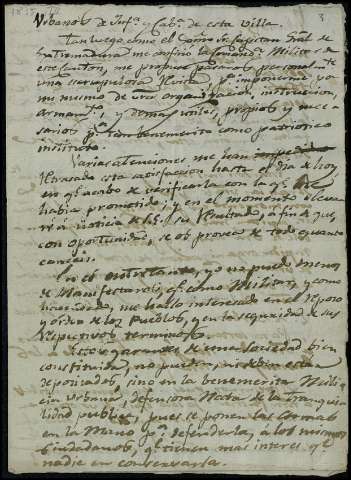 Urbanos de Inf.ª y Cab.ª de esta Villa.
Tan luego como el Señor Capitan Gral de
Extremadura me confirió la Comand.ª Militar de
este Canton, me propuse pasaros personalm.te
una Revista, é imponerme por
mi mismo de vtra organizacion, instruccion,
armam.to, y demas utiles, propios y nece-
sarios p.ª tan benemerito como patriotico
instituto.
Varias atenciones me han
retrasado esta satisfaccion hasta el dia de hoy,
en q.e acabo de verificarla con la q.e
habia prometido; y en el momento elevaré
a noticia de S.E. su resultado, á fin de que,
con oportunidad, se os provea de todo quanto
careceis.
En el entretanto, yo no puedo menos
de Manifestaros, q.e como Militar, y como
hacendado, me hallo interesado en el reposo
y orden de los Pueblos, y en la seguridad de sus
respectivos terminos.
Estos garantes de una sociedad bien
constituida, no pueden, ni deben estar
depositados, sino en la benemerita Mili-
cia Urbana, defensora Nata de la tranqui-
lidad publica, pues se ponen las Armas
en la Mano p.ª defenderla, á los mismos
Ciudadanos, q.e tienen mas interes q.e
nadie en conservarla.